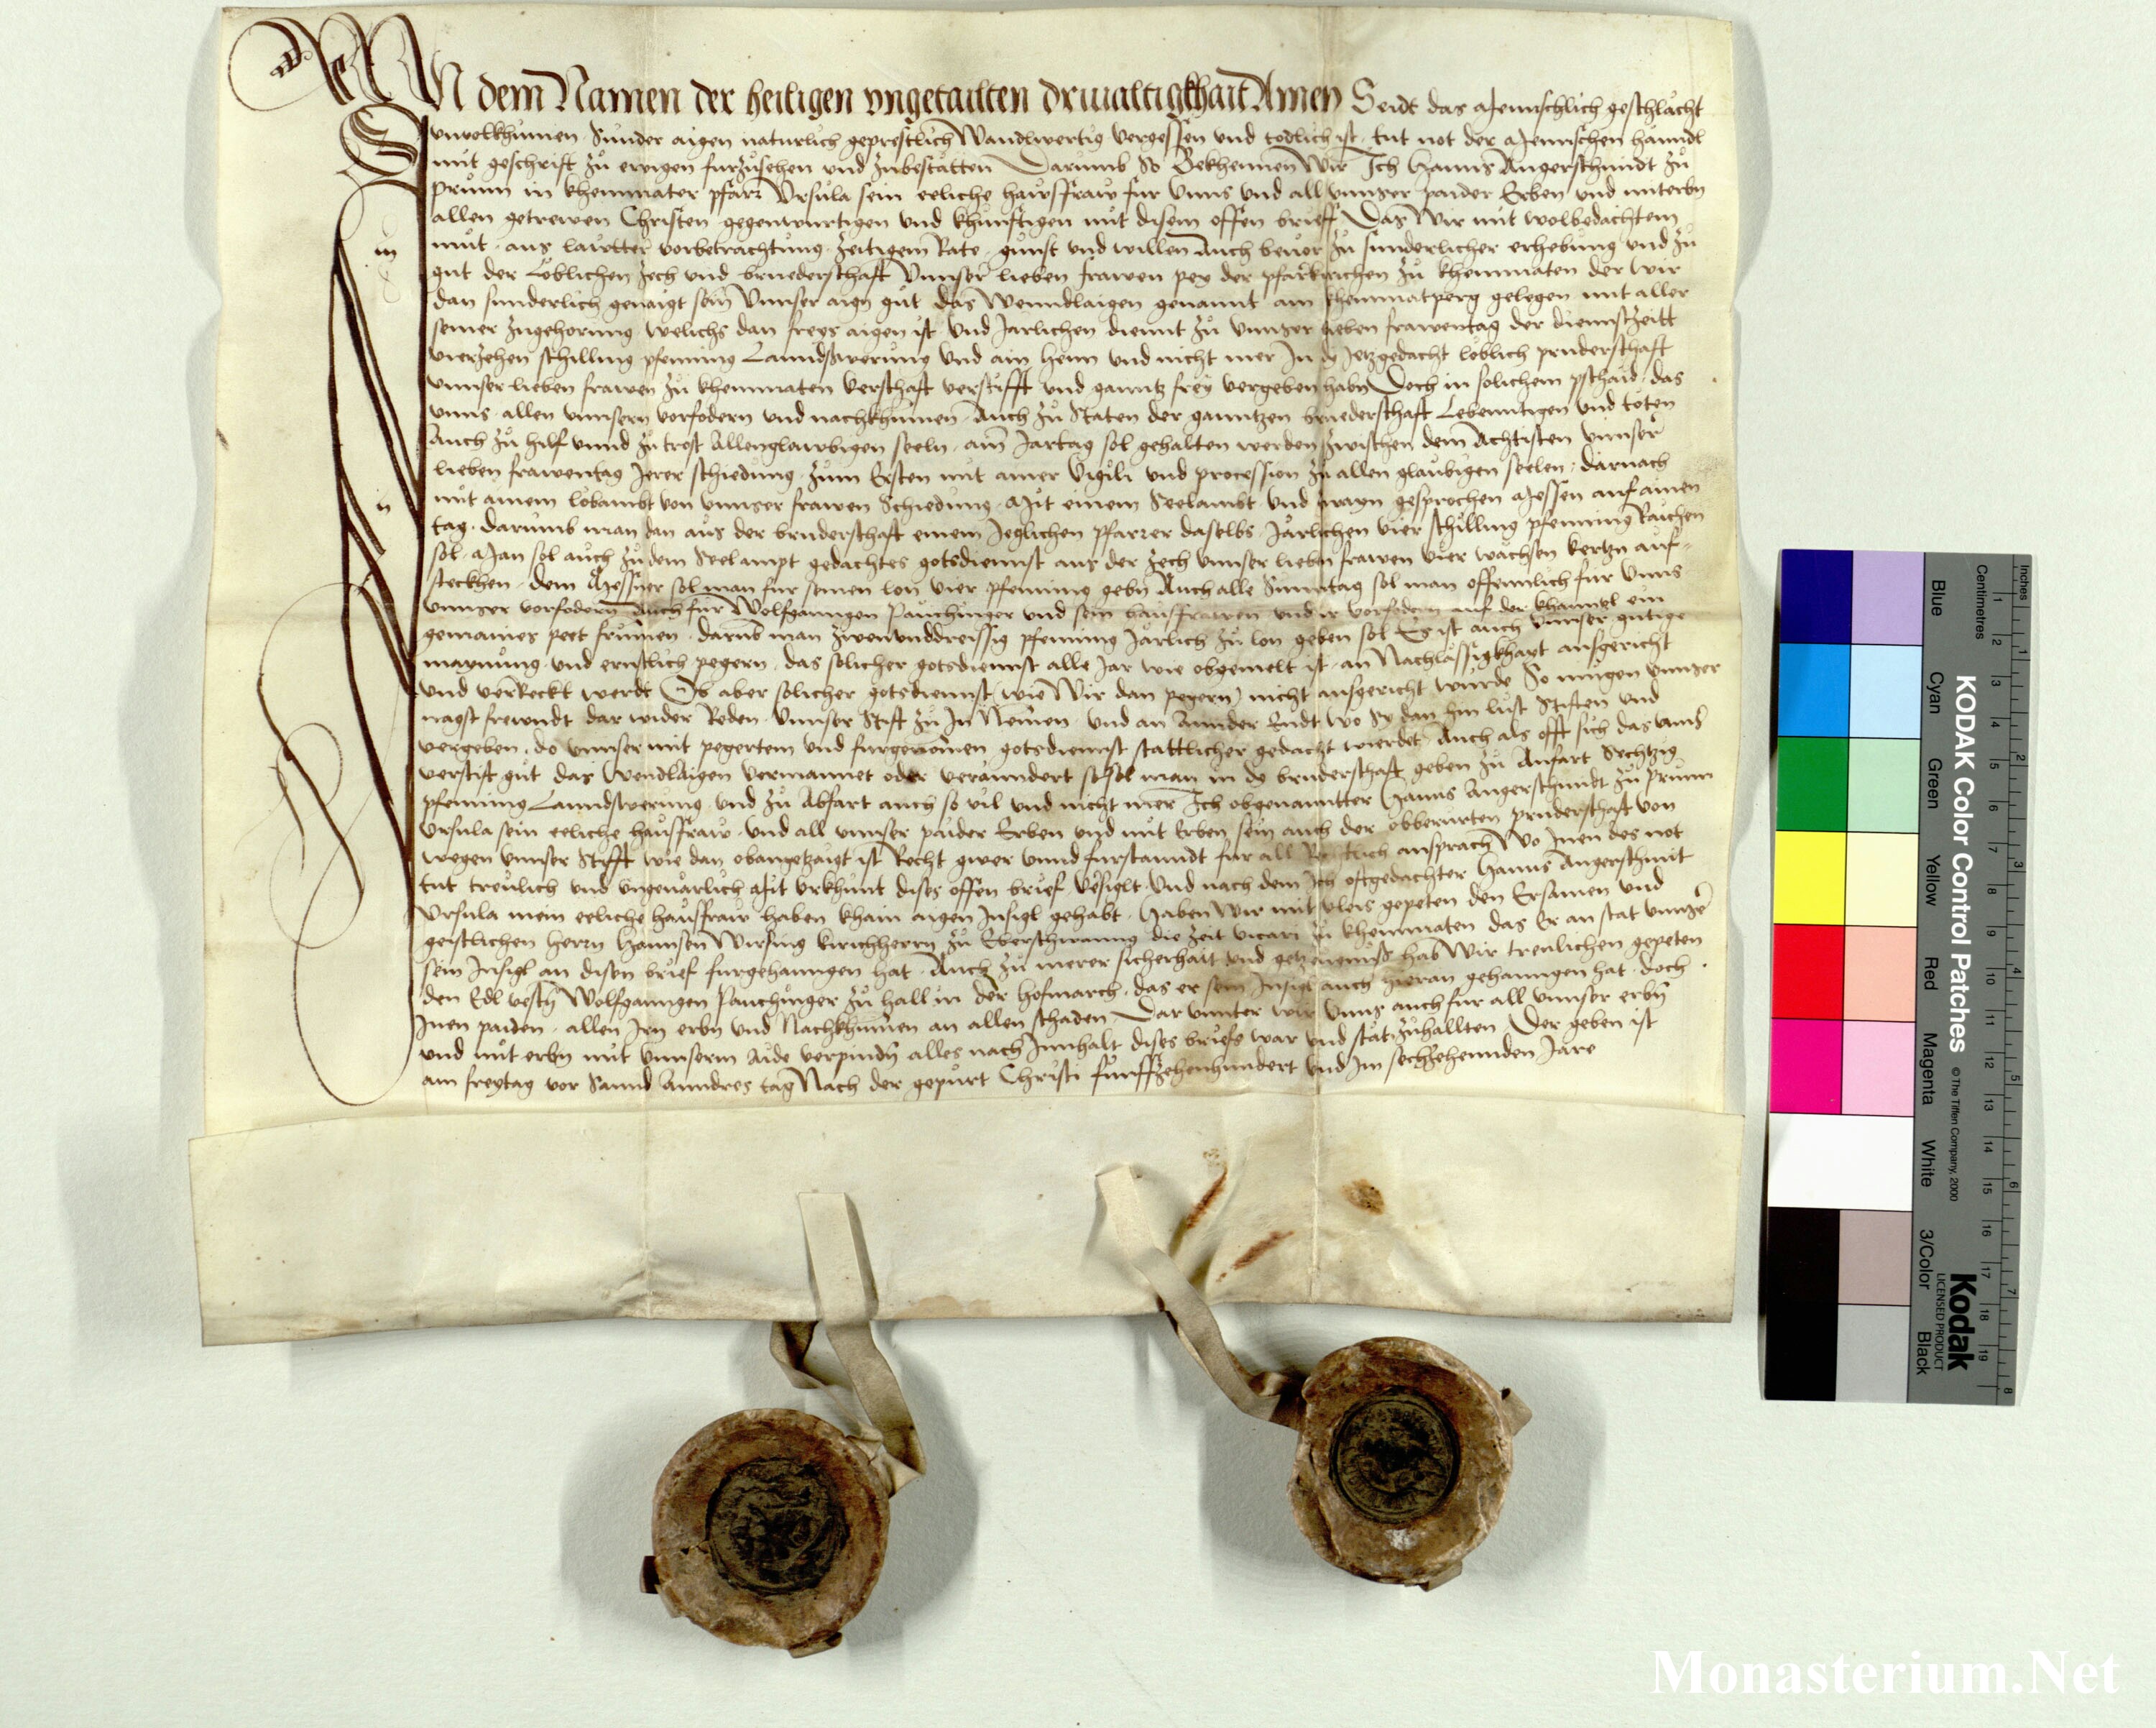 IN dem Namen der heiligen vngetailten driualtigkhait Amen Seidt das Mennschlich geschlächt
vnuolkhumen. Sunder aigen naturlich geprestlich Wandlwertig vergessen vnd todlich ist. tut not der Mennschen hanndl
mit geschrift zu ewigen furzusehen vnd zubestätten Darumb So Bekhennen Wir Ich Hanns Angerschmidt zu
prunn in khemnater pfarr Vrsula sein eeliche hawsfraw fur Vnns vnd all vnnser paider Erben vnd miterbn
allen getrewen Christen gegenwurtigen vnd khunftigen mit disem offen brieff Das Wir mit wolbedachtem
mut. aus lautter vorbetrachtung. zeitigem Rate. gunst vnd willen Auch beuor zu sunderlicher erhebung vnd zu
gut der Loblichen zech vnd bruederschaft Vnnser lieben frawen pey der pfarrkirichen zu khemnaten der wir
dan sunderlich genaigt sein Vnnser aign gut das Wenndlaigen genannt am khemnatperg gelegen mit aller
seiner zugehorung. welichs dan freys aigen ist. vnd Jarlichen diennt zu vnnser lieben frawentag der diennstzeitt
vierzehen schilling pfenning Lanndswerung vnd ain henn vnd nicht mer In dy Jetzgedacht loblich pruderschaft
vnnser lieben frawen zu khemnaten verschaft verstifft vnd ganntz frey vergeben habn Doch in solichem pschaid. das
vnns. allen vnnsern vorfodern vnd nachkhumen. Auch zu Staten der ganntzen bruederschaft Lebenntigen vnd toten
Auch zu hilf vnnd zu trost Allenglawbigen seeln. ain Jartag sol gehalten werden zwischen dem Achtisten vnnser
lieben frawentag Jerer schiedung. zum Ersten mit ainer Vigili vnd procession zu allen glaubigen seelen. darnach
mit ainem lobambt von vnnser frawen Schiedung. Mit einem Seelambt vnd zwayn gesprochen Messen auf ainen
tag. darumb man dan aus der bruderschaft einem Jeglichen pfarrer daselbs Järlichen vier schilling pfenning Raichen
sol. Man sol auch zu dem Seelampt gedachtes gotsdiennst aus der zech vnnser lieben frawen vier wachsen kertzn auf-
steckhen. dem Messner sol man fur seinen lon vier pfenning gebn Auch alle Sunntag sol man offennlich fur vnns
vnnser vorfodern Auch fur Wolfganngen Pauchinger vnd sein hausfrawen vnd ir vorfodern auf der khanntzl ein
gemaines peet frumen. darumb man zwenunddreissig pfenning Jarlich zu lon geben sol Es ist auch vnnser gutige
maynung. vnd ernstlich pegern. das solicher gotsdiennst alle Jar wie obgemelt ist. an Nachlässigkhayt ausgericht
vnd verkeckt werdt Ob aber solicher gotsdiennst (wie Wir dan pegern) nicht ausgericht wurde So mugen vnnser
nagst frewndt dar wider Reden. Vnnser Stift zu In Nemen. vnd an Annder Endt wo Sy dan hin lust Stiften vnd
vergeben. do vnnser mit pegertem vnd furgenomen gotsdiennst stattlicher gedacht wierdet Auch als offt sich das vnnser
verstift gut das Wendlaigen vermannet oder veränndert so sol man in de bruderschaft geben zu Anfart Sechtzig
pfenning Lanndswerung. vnd zu Abfart auch so vil vnd nicht mer Ich obgenanntter Hanns Angerschmidt zu Prunn
Vrsula sein eeliche hausfraw. vnd all vnnser paider Erben vnd mit Erben sein auch der obberurten pruderschaft von
wegen vnnser Stifft wie dan obangezaigt ist Recht gwer vnnd furstanndt fur all Rechtlich ansprach Wo Inen des not
tut trewlich vnd vngeuarlich Mit vrkhunt dises offen brief Vesiglt. Vnd nach dem Ich oftgedachter Hanns Angerschmit
Vrsula mein eeliche hausfraw haben khain aigen Insigl gehabt. Haben Wir mit vleis gepeten den Ersamen vnd
geistlichen Herrn Hannsen Wirsing kirichherrn zu Eberschwanng die zeit vicari zu khemnaten das Er an stat vnnser
sein Insigl an disen brief furgehanngen hat. Auch zu merer sicherhait vnd getzeugnuss hab Wir treulichen gepeten
den Edl vestn Wolfganngen Pauchinger zu hall in der hofmarch. das er sein Insigl auch hieran gehanngen hat. doch
Inen paiden. allen Irn erbn vnd Nachkhumen an allen schaden Dar vnnter wir vnns auch fur all vnnser erbn
vnd mit erbn mit vnnserm Aide verpindn alles nach Innhalt dises briefs war vnd stät zuhallten Der geben ist
am freytag vor Sannd Anndres tag Nach der gepurt Christi funffzehenhundert vnd Im sechzehennden Jare
KODAK Color Control Patches © The Tiffen Company, 2000
Kodak
LICENSED PRODUCT
Inches
Centimetres
Blue Cyan Green Yellow Red Magenta White 3/Color Black
Monasterium.Net